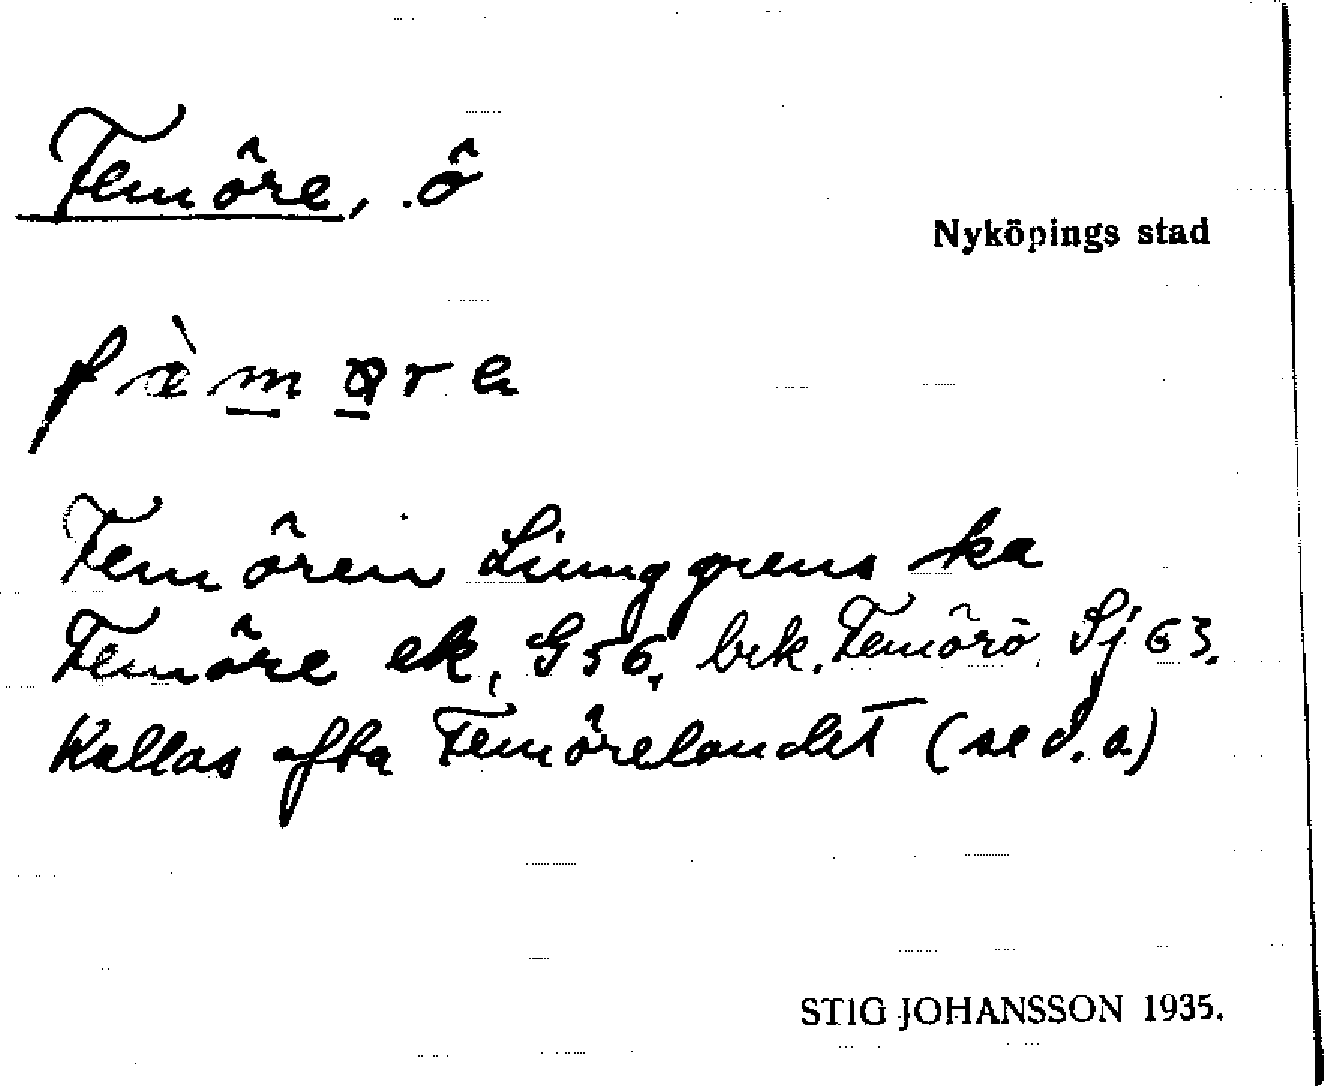 Femöre, ö
Nyköpings stad
Femören Ljunggrens ka
Femöre ek, G56, bik. Femörö Sj 63.
Kallas ofta Femörelandet (se d. o.)
STIG JOHANSSON 1935.